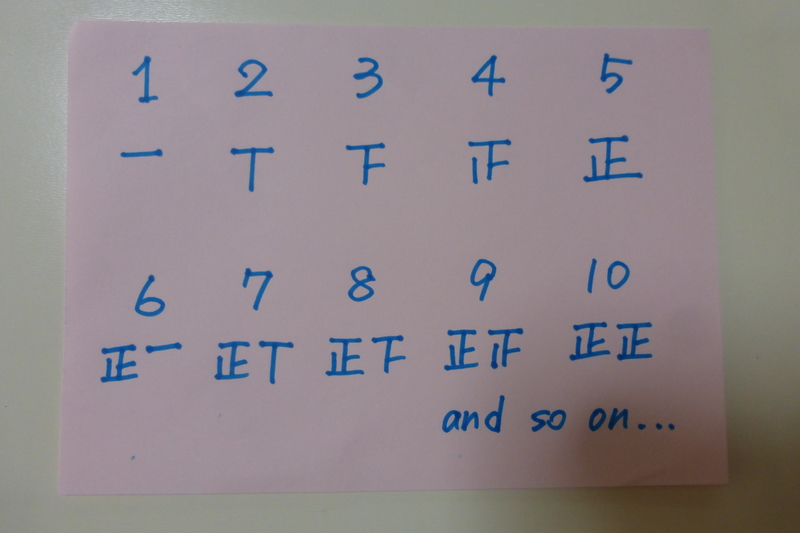 1 2 3 4 5
一 丅 下 𤴓 正
6 7 8 9 10
正一 正丅 正下 正𤴓 正正
and so on...